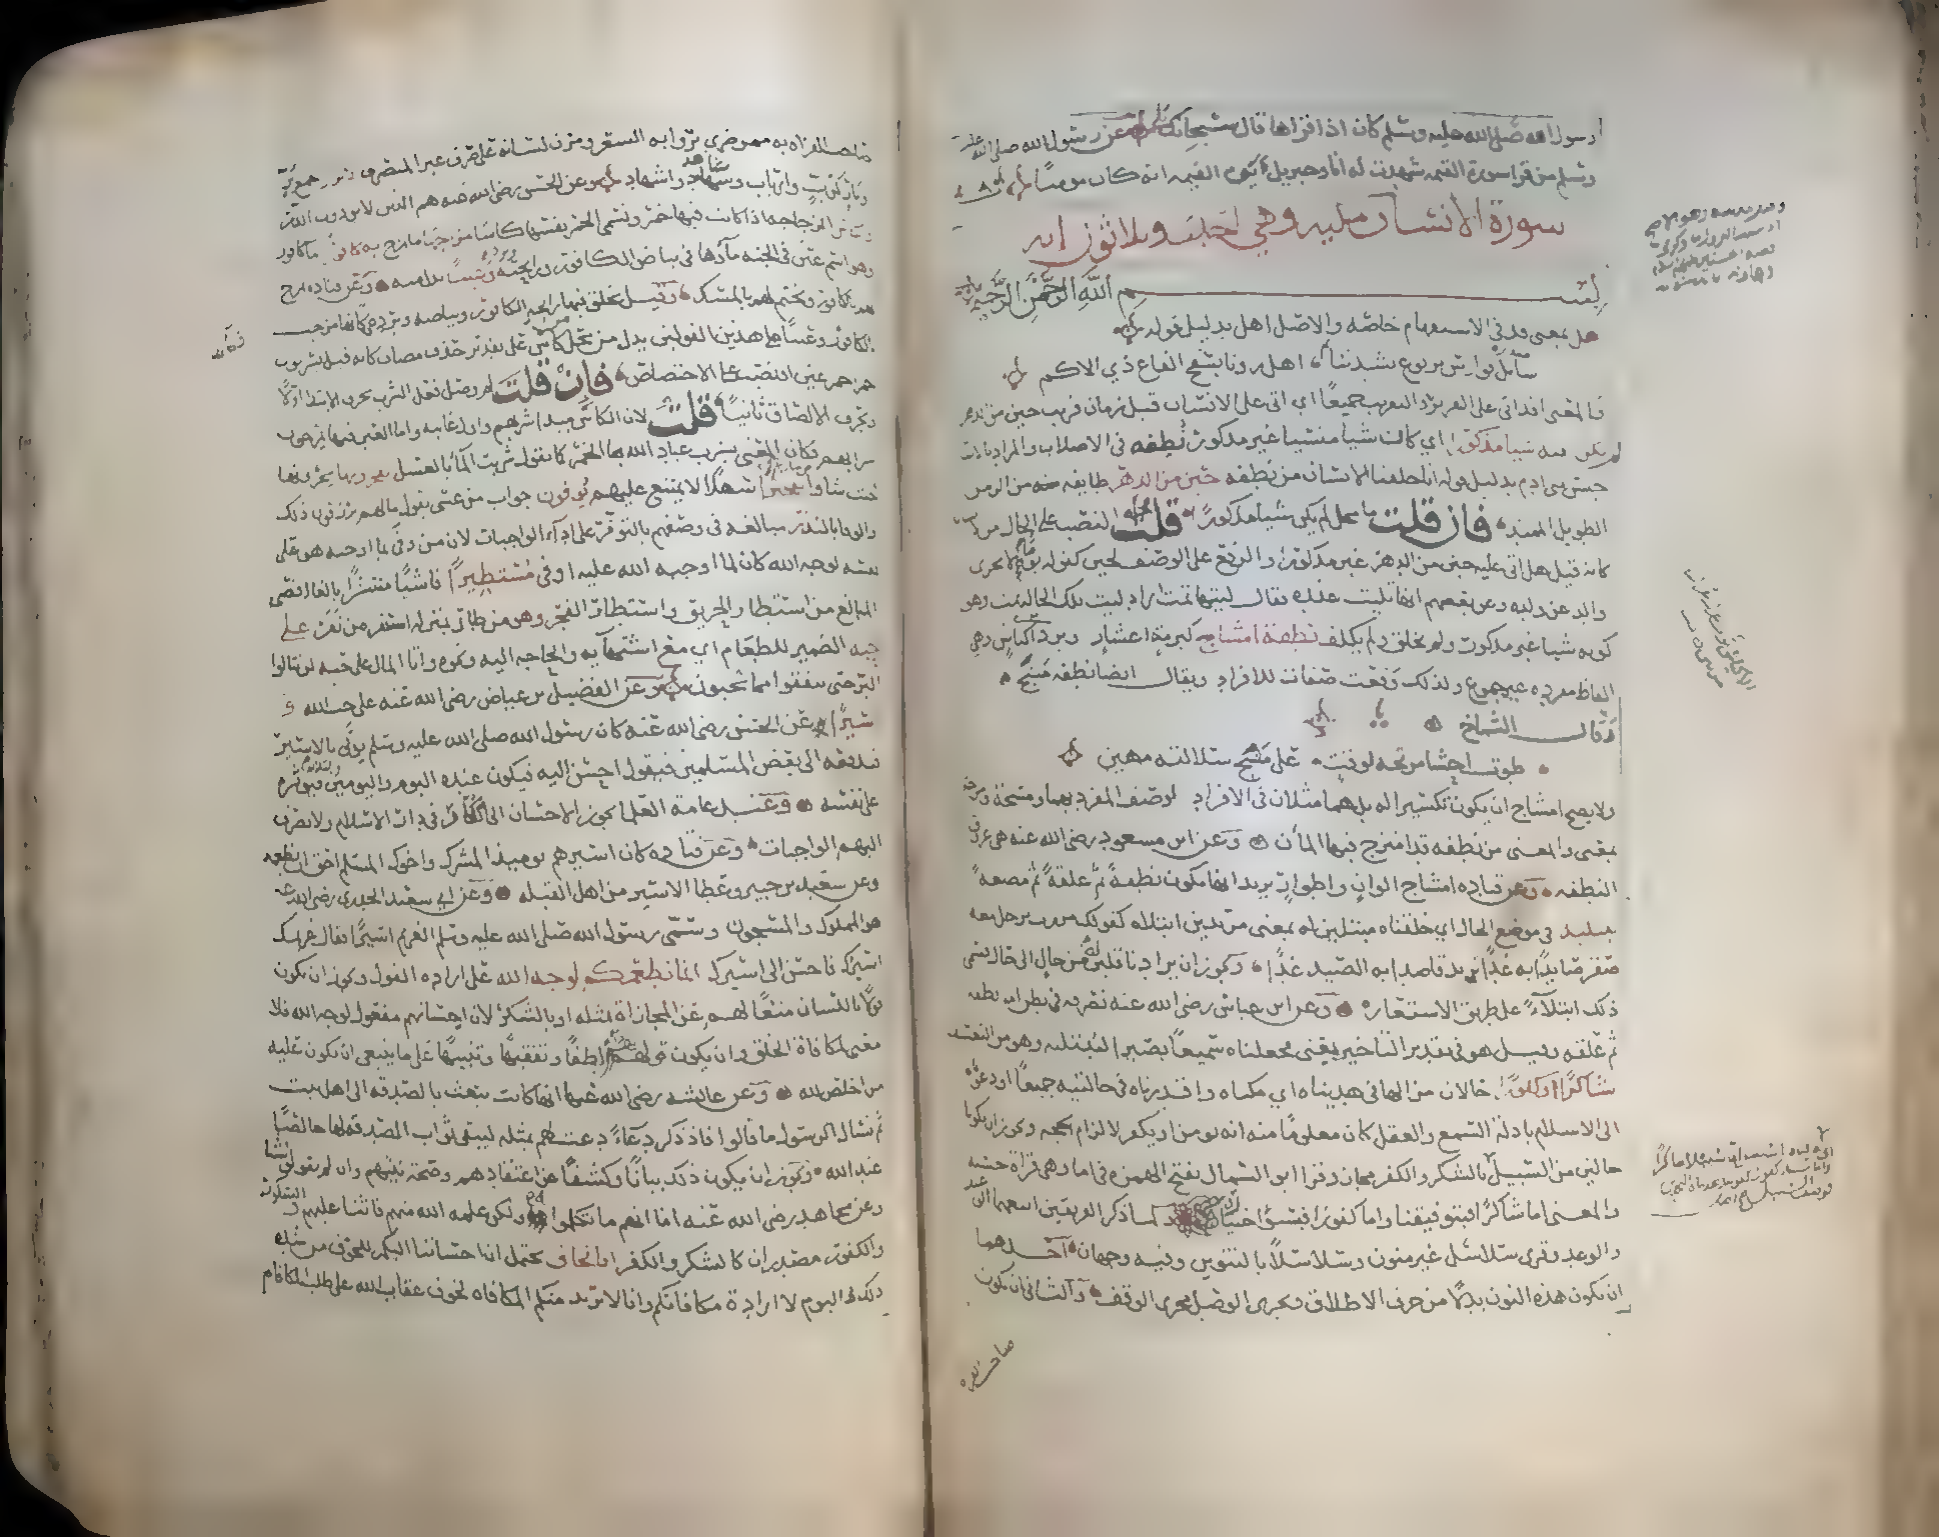 رسول الله صلى الله عليه وسلم كان اذا قراها قال سبحانك بلى عن رسول الله صلى الله عليه
وسلم من قرا سورة القيمه شهدت له انا وجبريل يوم القيمه انه كان مومنا
سورة الانسان مكيه وهي احدى وثلاثون ايه
بسم الله الرحمن الرحيم
هل بمعنى قد في الاستفهام خاصه والاصل اهل بدليل قوله
سائل فوارس يربوع بشدتنا اهل رونا بسفح القاع ذي الاكم
فالمعنى اقد اتى على التقرير والتقريب جميعا اي اتى على الانسان قبل زمان قريب حين من الدهر
لم يكن فيه شيا مذكورا اي كان شيا منسيا غير مذكور نطفه في الاصلاب والمراد بالانسان
جنس بني ادم بدليل قوله انا خلقنا الانسان من نطفه حين من الدهر طايفه من الزمن
الطويل الممتد فان قلت ما محل لم يكن شيا مذكورا قلت محله النصب على الحال من
كانه قيل هل اتى عليه حين من الدهر غير مذكور او الرفع على الوصف لحين كقوله يوما لا يجزي
والد عن ولده وعن بعضهم انها تليت عنده فقال ليتها تمت اراد ليت تلك الحاله تمت وهو
كونه شيا غير مذكور ولم يخلق ولم يكلف نطفة امشاج كبرمة اعشار وبرد اكياش وهي
الفاظ مفرده غير جموع ولذلك وقعت صفات للافراد ويقال ايضا نطفه مشج
وقال الشماخ
طوت احشا مرتجه لوقت على مشج سلالته مهين
ولا يصح امشاج ان يكون تكسيرا له بل هما مثلان في الافراد لوصف المفرد بهما ومشجه ومزجه
بمعنى والمعنى من نطفه قد امتزج فيها المآن وعن ابن مسعود رضي الله عنه هي عروق
النطفه وعن قتاده امشاج الوان واطوار يريد انها تكون نطفة ثم علقة ثم مضغة
نبتليه في موضع الحال اي خلقناه مبتلين له بمعنى مريدين ابتلاه كقولك مررت برجل معه
صقر صايدا به غدا تريد قاصدا به الصيد غدا ويجوز ان يراد ناقلين له من حال الى حال فسمي
ذلك ابتلاء على طريق الاستعاره وعن ابن عباس رضي الله عنه نصرفه في بطن امه نطفه
ثم علقه وقيل هو في تقدير التاخير يعني فجعلناه سميعا بصيرا لنبتليه وهو من التعسف
شاكرا او كفورا حالان من الها في هديناه اي مكناه واقدرناه في حالتيه جميعا او دعوناه
الى الاسلام بادلة السمع والعقل كان معلوما منه انه يومن او يكفر لالزام الحجه ويجوز ان يكونا
حالين من السبيل بالشكر والكفر مجاز وقرا ابو السمال بفتح الهمزه في اما وهي قراة حسنه
والمعنى اما شاكرا فبتوفيقنا واما كفورا فبسؤ اختياره لما ذكر الفريقين اتبعهما
والوعد وقرى سلاسل غير منون وسلاسلا بالتنوين وفيه وجهان احدهما
ان تكون هذه النون بدلا من حرف الاطلاق ويجري الوصل مجرى الوقف والثاني ان يكون
صاحب القراه
صاحب القراه به ممن ضري برواية الشعر ومرن لسانه على صرف غير المنصرف جمع بر
وبار كرب وارباب وشاهد واشهاد وعن الحسن رضي الله عنه هم الذين لا يوذون الذر
الزجاجه اذا كانت فيها خمر وتسمى الخمر نفسها كاسا مزاجها ما تمزج به كافورا ما كافور
وهو اسم عين في الجنه ماوها في بياض الكافور ورايحته وبرده وعن قتاده تمزج
لهم بالكافور وتختم لهم بالمسك وقيل تخلق فيها رايحه الكافور وبياضه وبرده فكانها مزجت
بالكافور وعينا على هذين القولين بدل من محل من كاس على تقدير حذف مضاف كانه قيل يشربون
خمرا خمر عين او نصب على الاختصاص فان قلت لم وصل فعل الشرب بحرف الابتدا اولا
وبحرف الالصاق ثانيا قلت لان الكاس مبدا شربهم واول غايته واما العين فبها يمزجون
شرابهم فكان المعنى يشرب عباد الله بها الخمر كما تقول شربت الما بالعسل يفجرونها يجرونها
حيث شاوا تفجيرا سهلا لا يمتنع عليهم يوفون جواب من عسى يقول ما لهم يرزقون ذلك
والوفا بالنذر مبالغه في وصفهم بالتوفر على ادآء الواجبات لان من وفى بما اوجبه هو على
نفسه لوجه الله كان لما اوجبه الله عليه اوفى مستطيرا فاشيا منتشرا بالغا اقصى
المبالغ من استطار الحريق واستطار الفجر وهو من طار بمنزله استنفر من نفر على
حبه الضمير للطعام اي مع اشتهايه والحاجه اليه ونحوه واتى المال على حبه لن تنالوا
البر حتى تنفقوا مما تحبون وعن الفضيل بن عياض رضي الله عنه على حب الله و
اسيرا وعن الحسن رضي الله عنه كان رسول الله صلى الله عليه وسلم يوتى بالاسير
فيدفعه الى بعض المسلمين فيقول احسن اليه فيكون عنده اليوم واليومين والثلاثة فيوثره
على نفسه وعند عامة العلما يجوز الاحسان الى الكفار في دار الاسلام ولا تصرف
اليهم الواجبات وعن قتاده كان اسيرهم يوميذ المشرك واخوك المسلم احق ان تطعمه
وعن سعيد بن جبير وعطا الاسير من اهل القبله وعن ابي سعيد الخدري رضي الله عنه
هو المملوك والمسجون وسمى رسول الله صلى الله عليه وسلم الغريم اسيرا فقال غريمك
اسيرك فاحسن الى اسيرك انما نطعمكم لوجه الله على اراده القول ويجوز ان يكون
قولا باللسان منعا لهم عن المجازاة بمثله او بالشكر لان احسانهم مفعول لوجه الله فلا
معنى لمكافاة الخلق وان يكون قولهم لطفا وتفقيها وتنبيها على ما ينبغي ان يكون عليه
من اخلص لله وعن عائشه رضي الله عنها انها كانت تبعث بالصدقه الى اهل بيت
ثم تسال الرسول ما قالوا فاذا ذكر دعاء دعت لهم بمثله ليبقى ثواب الصدقه لها خالصا
عند الله ويجوز ان يكون ذلك بيانا وكشفا عن اعتقادهم وصحة نيتهم وان لم يقولوا شيا
وعن مجاهد رضي الله عنه اما انهم ما تكلموا به ولكن علمه الله منهم فاثنى عليهم والشكور
والكفور مصدران كالشكر والكفر انا نخاف يحتمل ان احساننا اليكم للخوف من شده
ذلك اليوم لا ارادة مكافاتكم وانا لا نريد منكم المكافاه لخوف عقاب الله على طلب المكافاه